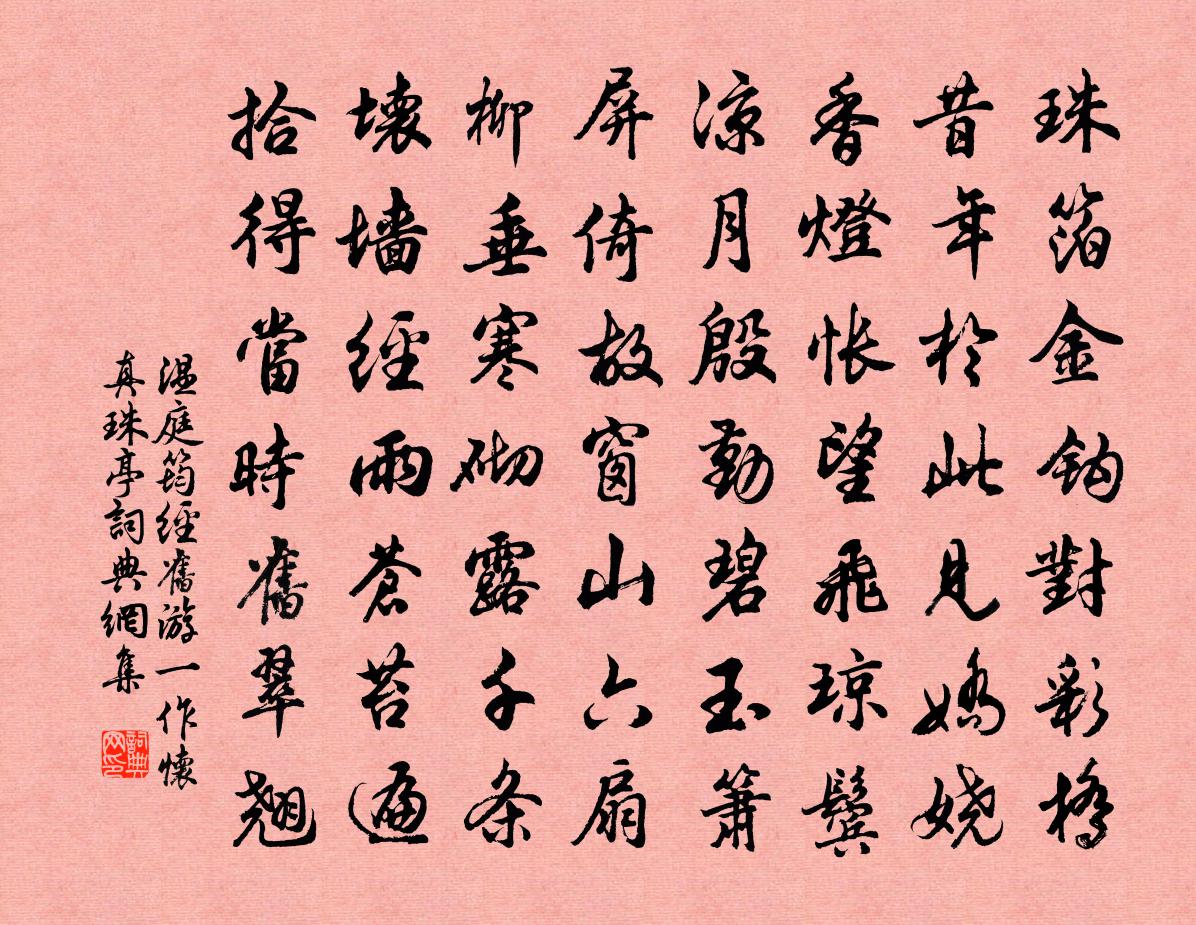 珠箔金鈎對彩橋
昔年於此見嬌嬈
香燈悵望飛瓊鬢
涼月殷勤碧玉簫
屏倚故窗山六扇
柳垂寒砌露千条
壞墻經雨蒼苔遍
拾得當時舊翠翹
温庭筠經舊游一作懷
真珠亭詞典網集
詞典网印